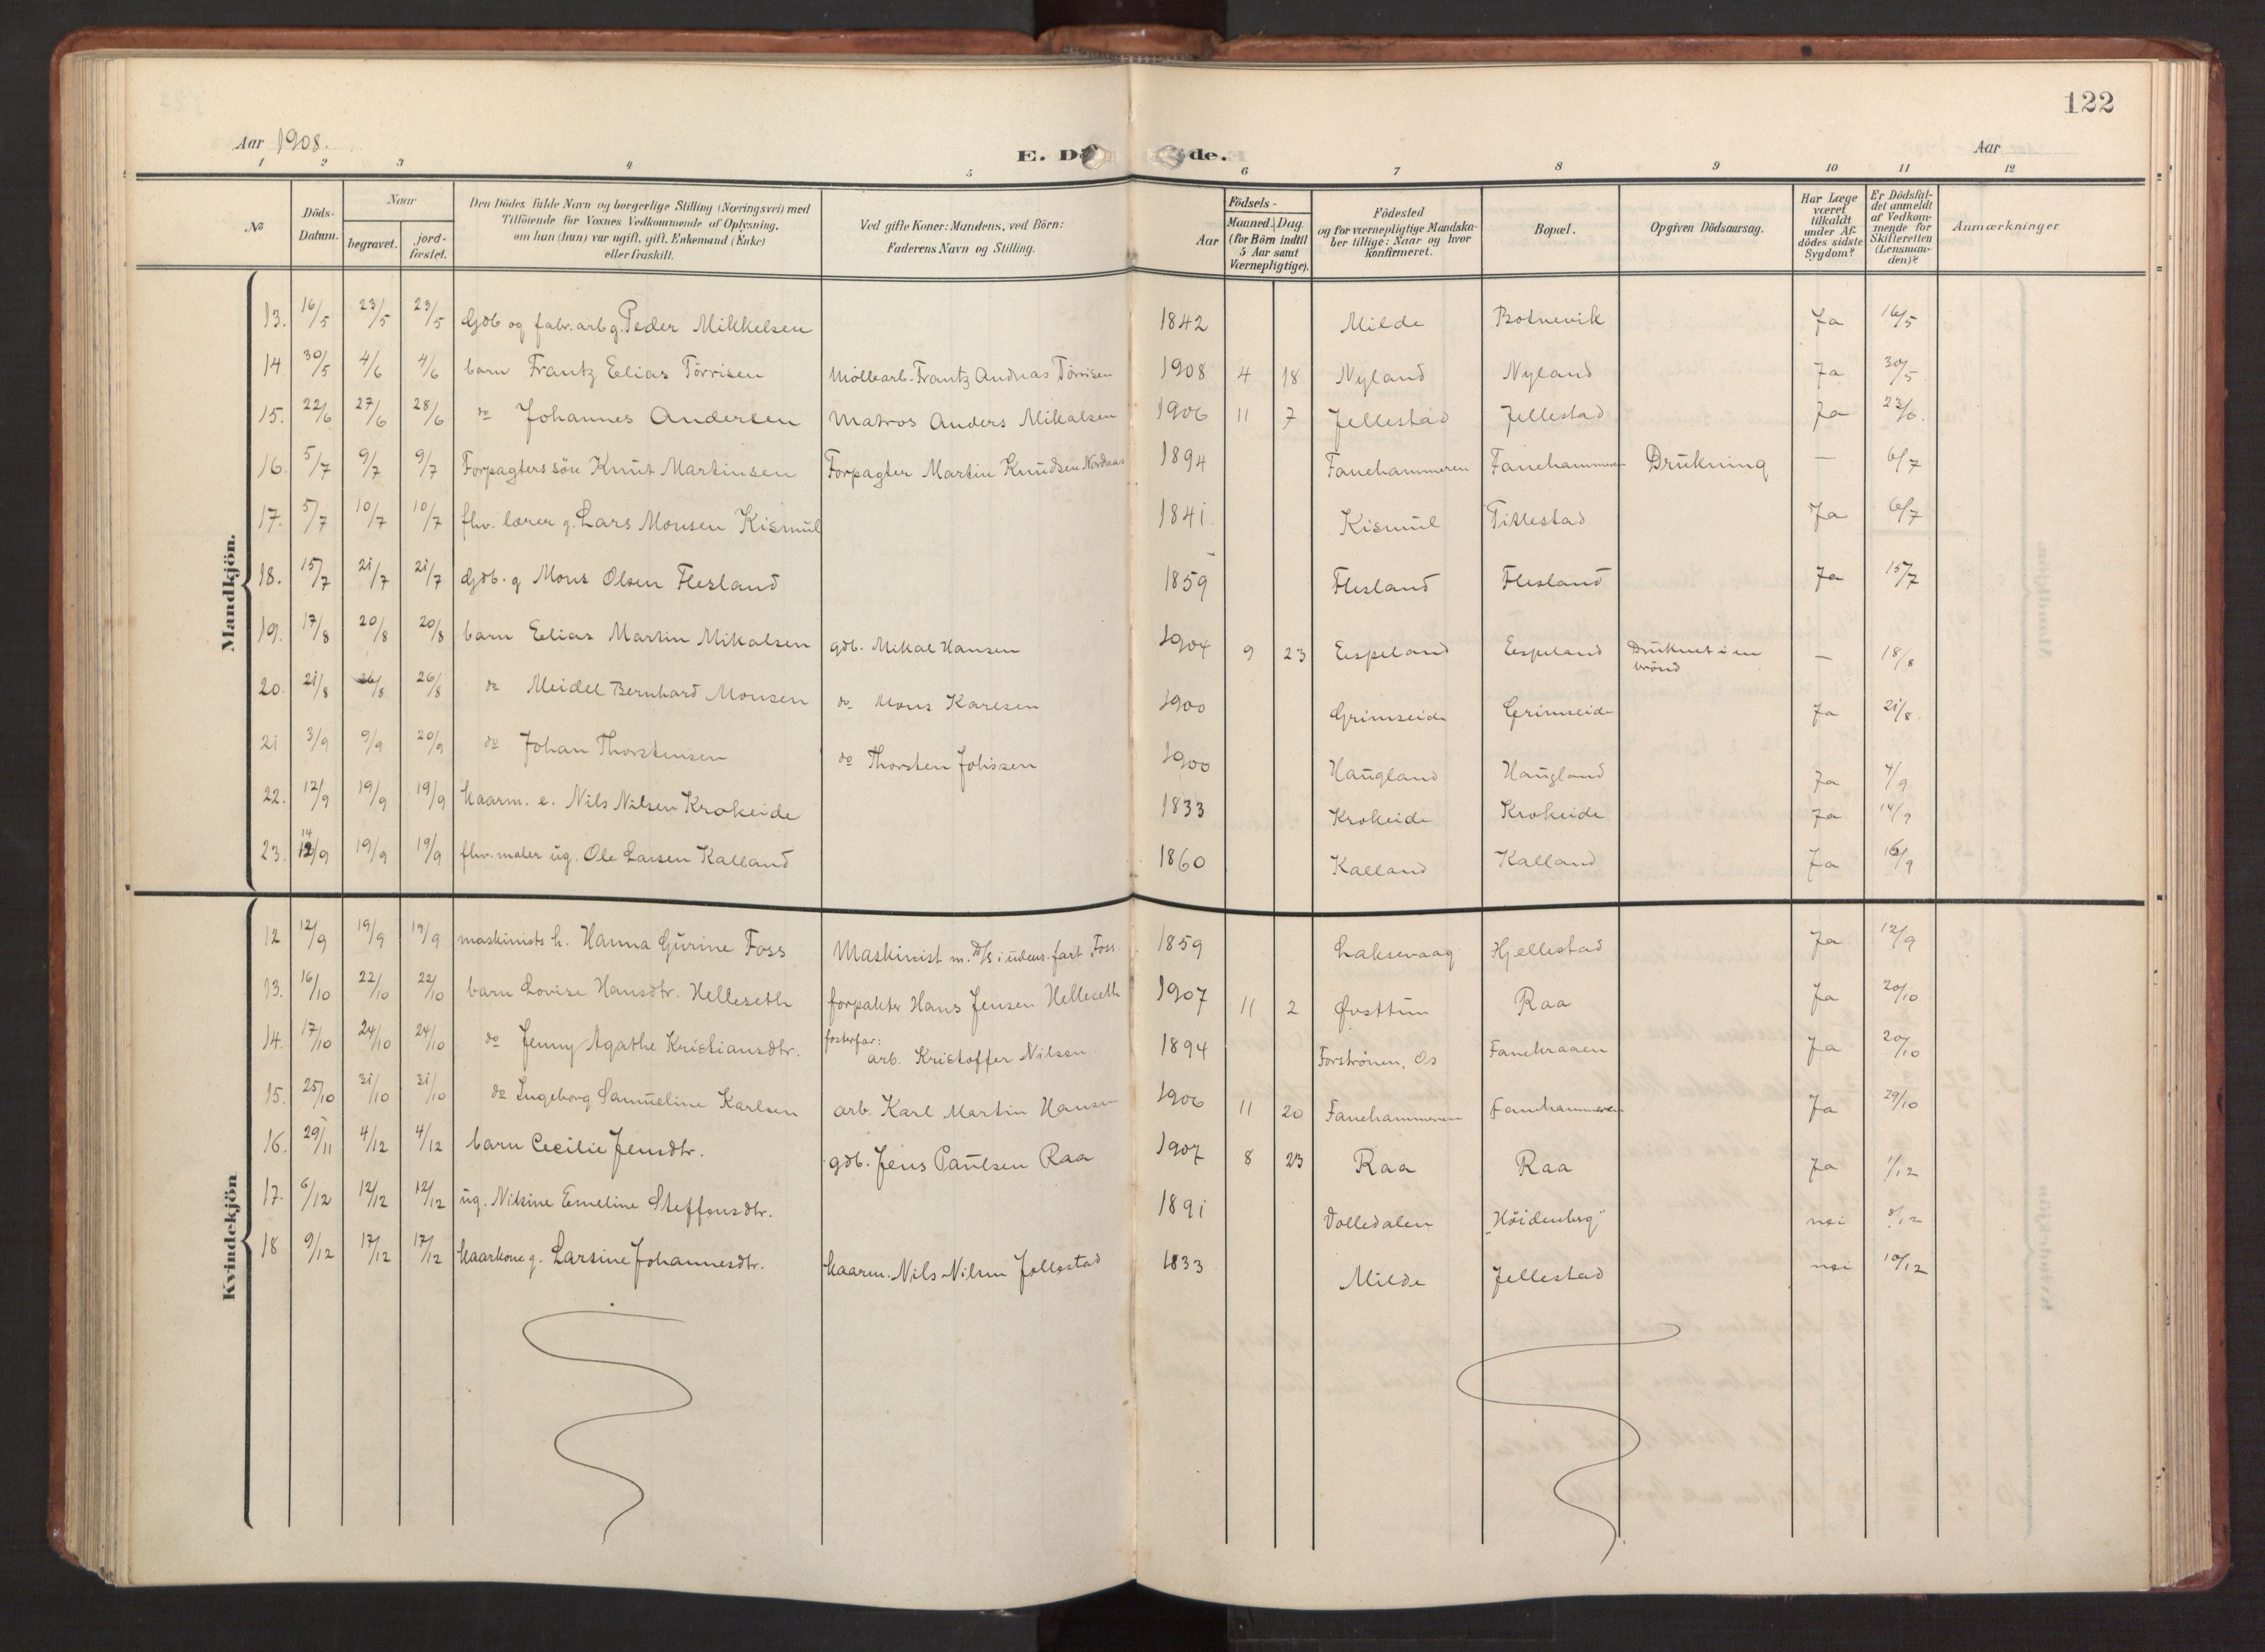 122
Aar 1908.
E. Dö de.
Aar
1 2 3 4 5 6 7 8 9 10 11 12
No
Döds-Datum.
Naar
begravet.
jord-fæstet.
Den Dödes fulde Navn og borgerlige Stilling (Næringsvei) med
Tilföiende for Voxnes Vedkommende af Oplysning,
om han (hun) var ugift, gift, Enkemand (Enke)
eller fraskilt.
Ved gifte Koner: Mandens, ved Börn:
Faderens Navn og Stilling.
Aar
Födsels-
Maaned. Dag.
(for Börn indtil
5 Aar samt
Værnepligtige).
Födested
og for værnepligtige Mandska-
ber tillige: Naar og hvor
konfirmeret.
Bopæl.
Opgiven Dödsaarsag.
Har Læge
været
tilkaldt
under Af-
dödes sidste
Sygdom?
Er Dödsfal-
det anmeldt
af Vedkom-
mende for
Skifteretten
(Lensman-
den)?
Anmærkninger
Mandkjön.
13. 16/5 23/5 23/5 Gdb og fabr.arb g. Peder Mikkelsen 1842 Milde Botnevik Ja 16/5
14. 30/5 4/6 4/6 barn Frantz Elias Törrisen Möllearb. Frantz Andreas Törrisen 1908 4 18 Nyland Nyland Ja 30/5
15. 22/6 27/6 28/6 do Johannes Andersen Matros Anders Mikalsen 1906 11 7 Jellestad Jellestad Ja 23/6.
16. 5/7 9/7 9/7 Forpagters sön Knut Martinsen Forpagter Martin Knudsen Nordaas 1894 Fanehammeren Fanehammeren Drukning — 6/7
17. 5/7 10/7 10/7 fhv. lærer g. Lars Monsen Kismul 1841. Kismul Titlestad Ja 6/7
18. 15/7 21/7 21/7 Gdb. g Mons Olsen Flesland 1859 Flesland Flesland Ja 15/7
19. 17/8 20/8 20/8 barn Elias Martin Mikalsen gdb. Mikal Hansen 1904 9 23 Espeland Espeland Druknet i en
brönd — 18/8
20. 21/8 26/8 26/8 do Meidel Bernhard Monsen do Mons Karlsen 1900 Grimseide Grimseide Ja 21/8.
21 3/9 9/9 20/9 do Johan Thorstensen do Thorsten Johssen 1900 Haugland Haugland Ja 4/9
22. 12/9 19/9 19/9 kaarm. e. Nils Nilsen Krokeide 1833 Krokeide Krokeide Ja 14/9
23. 14/9 19/9 19/9 fhv. maler ug. Ole Larsen Kalland 1860 Kalland Kalland Ja 16/9
Kvindekjön
12 12/9 19/9 19/9 maskinists h. Hanna Gurine Foss Maskinist m. D/S i udenr. fart Foss. 1859 Laksevaag Hjellestad Ja 12/9
13. 16/10 22/10 22/10 barn Lovise Hansdtr. Helleseth forpakter Hans Jensen Helleseth 1907 11 2 Øvsttun Raa Ja 20/10
14. 17/10 24/10 24/10 do Jenny Agathe Kristiansdtr. fosterfar:
arb. Kristoffer Nilsen 1894 Forströnen, Os Fanehraaen Ja 20/10
15. 25/10 31/10 31/10 do Ingeborg Samueline Karlsen arb. Karl Martin Hansen 1906 11 20 Fanehammeren Fanehammeren Ja 29/10
16. 29/11 4/12 4/12 barn Cecilie Jensdtr. gdb. Jens Paulsen Raa 1907 8 23 Raa Raa Ja 1/12
17. 6/12 12/12 12/12 ug. Nilsine Emeline Steffensdtr. 1891 Dolledalen "Höidenberg" nei 8/12
18 9/12 17/12 17/12 kaarkone g. Larsine Johannesdtr. kaarm. Nils Nilsen Jellestad 1833 Milde Jellestad nei 10/12